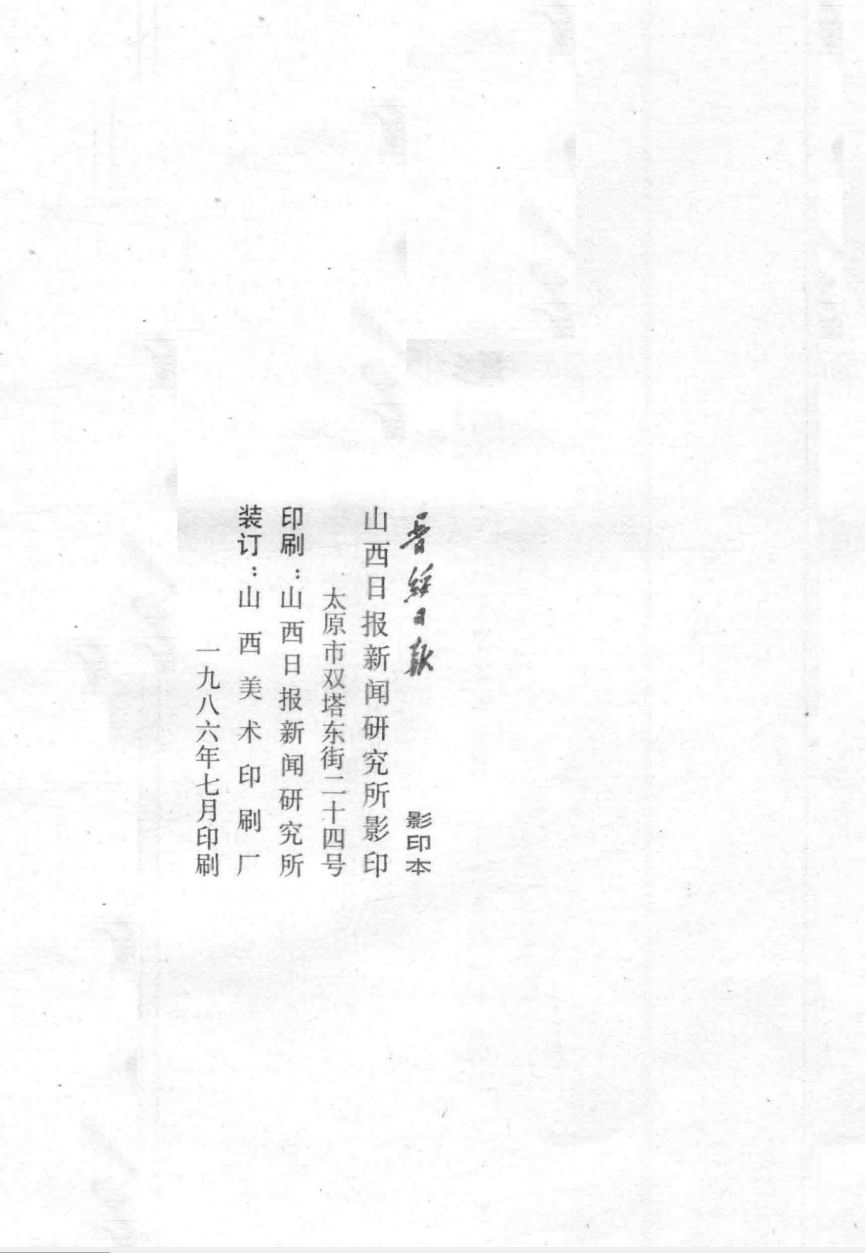 晋绥日报 影印本
山西日报新闻研究所影印
太原市双塔东街二十四号
印刷：山西日报新闻研究所
装订：山西美术印刷厂
一九八六年七月印刷